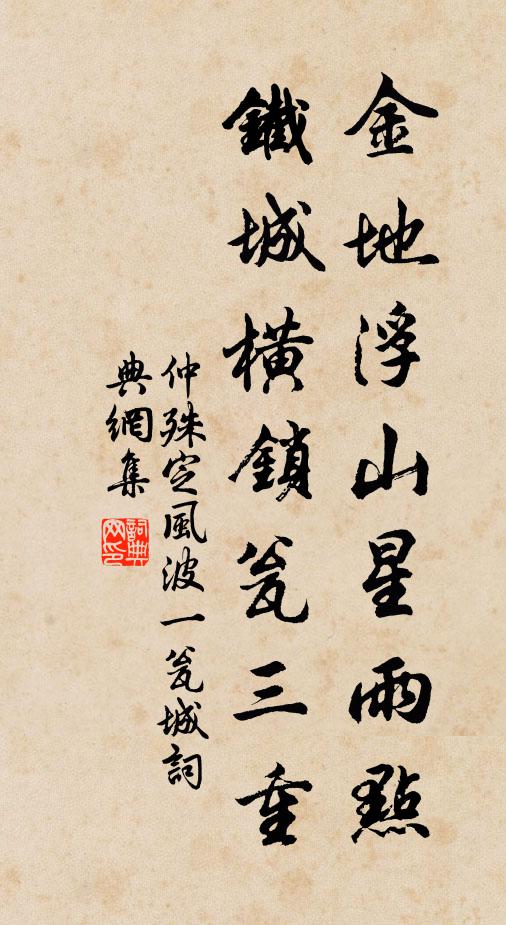 金地浮山星兩點
鐵城橫鎖瓮三重
仲殊定風波一瓮城詞
典網集
詞典
网印